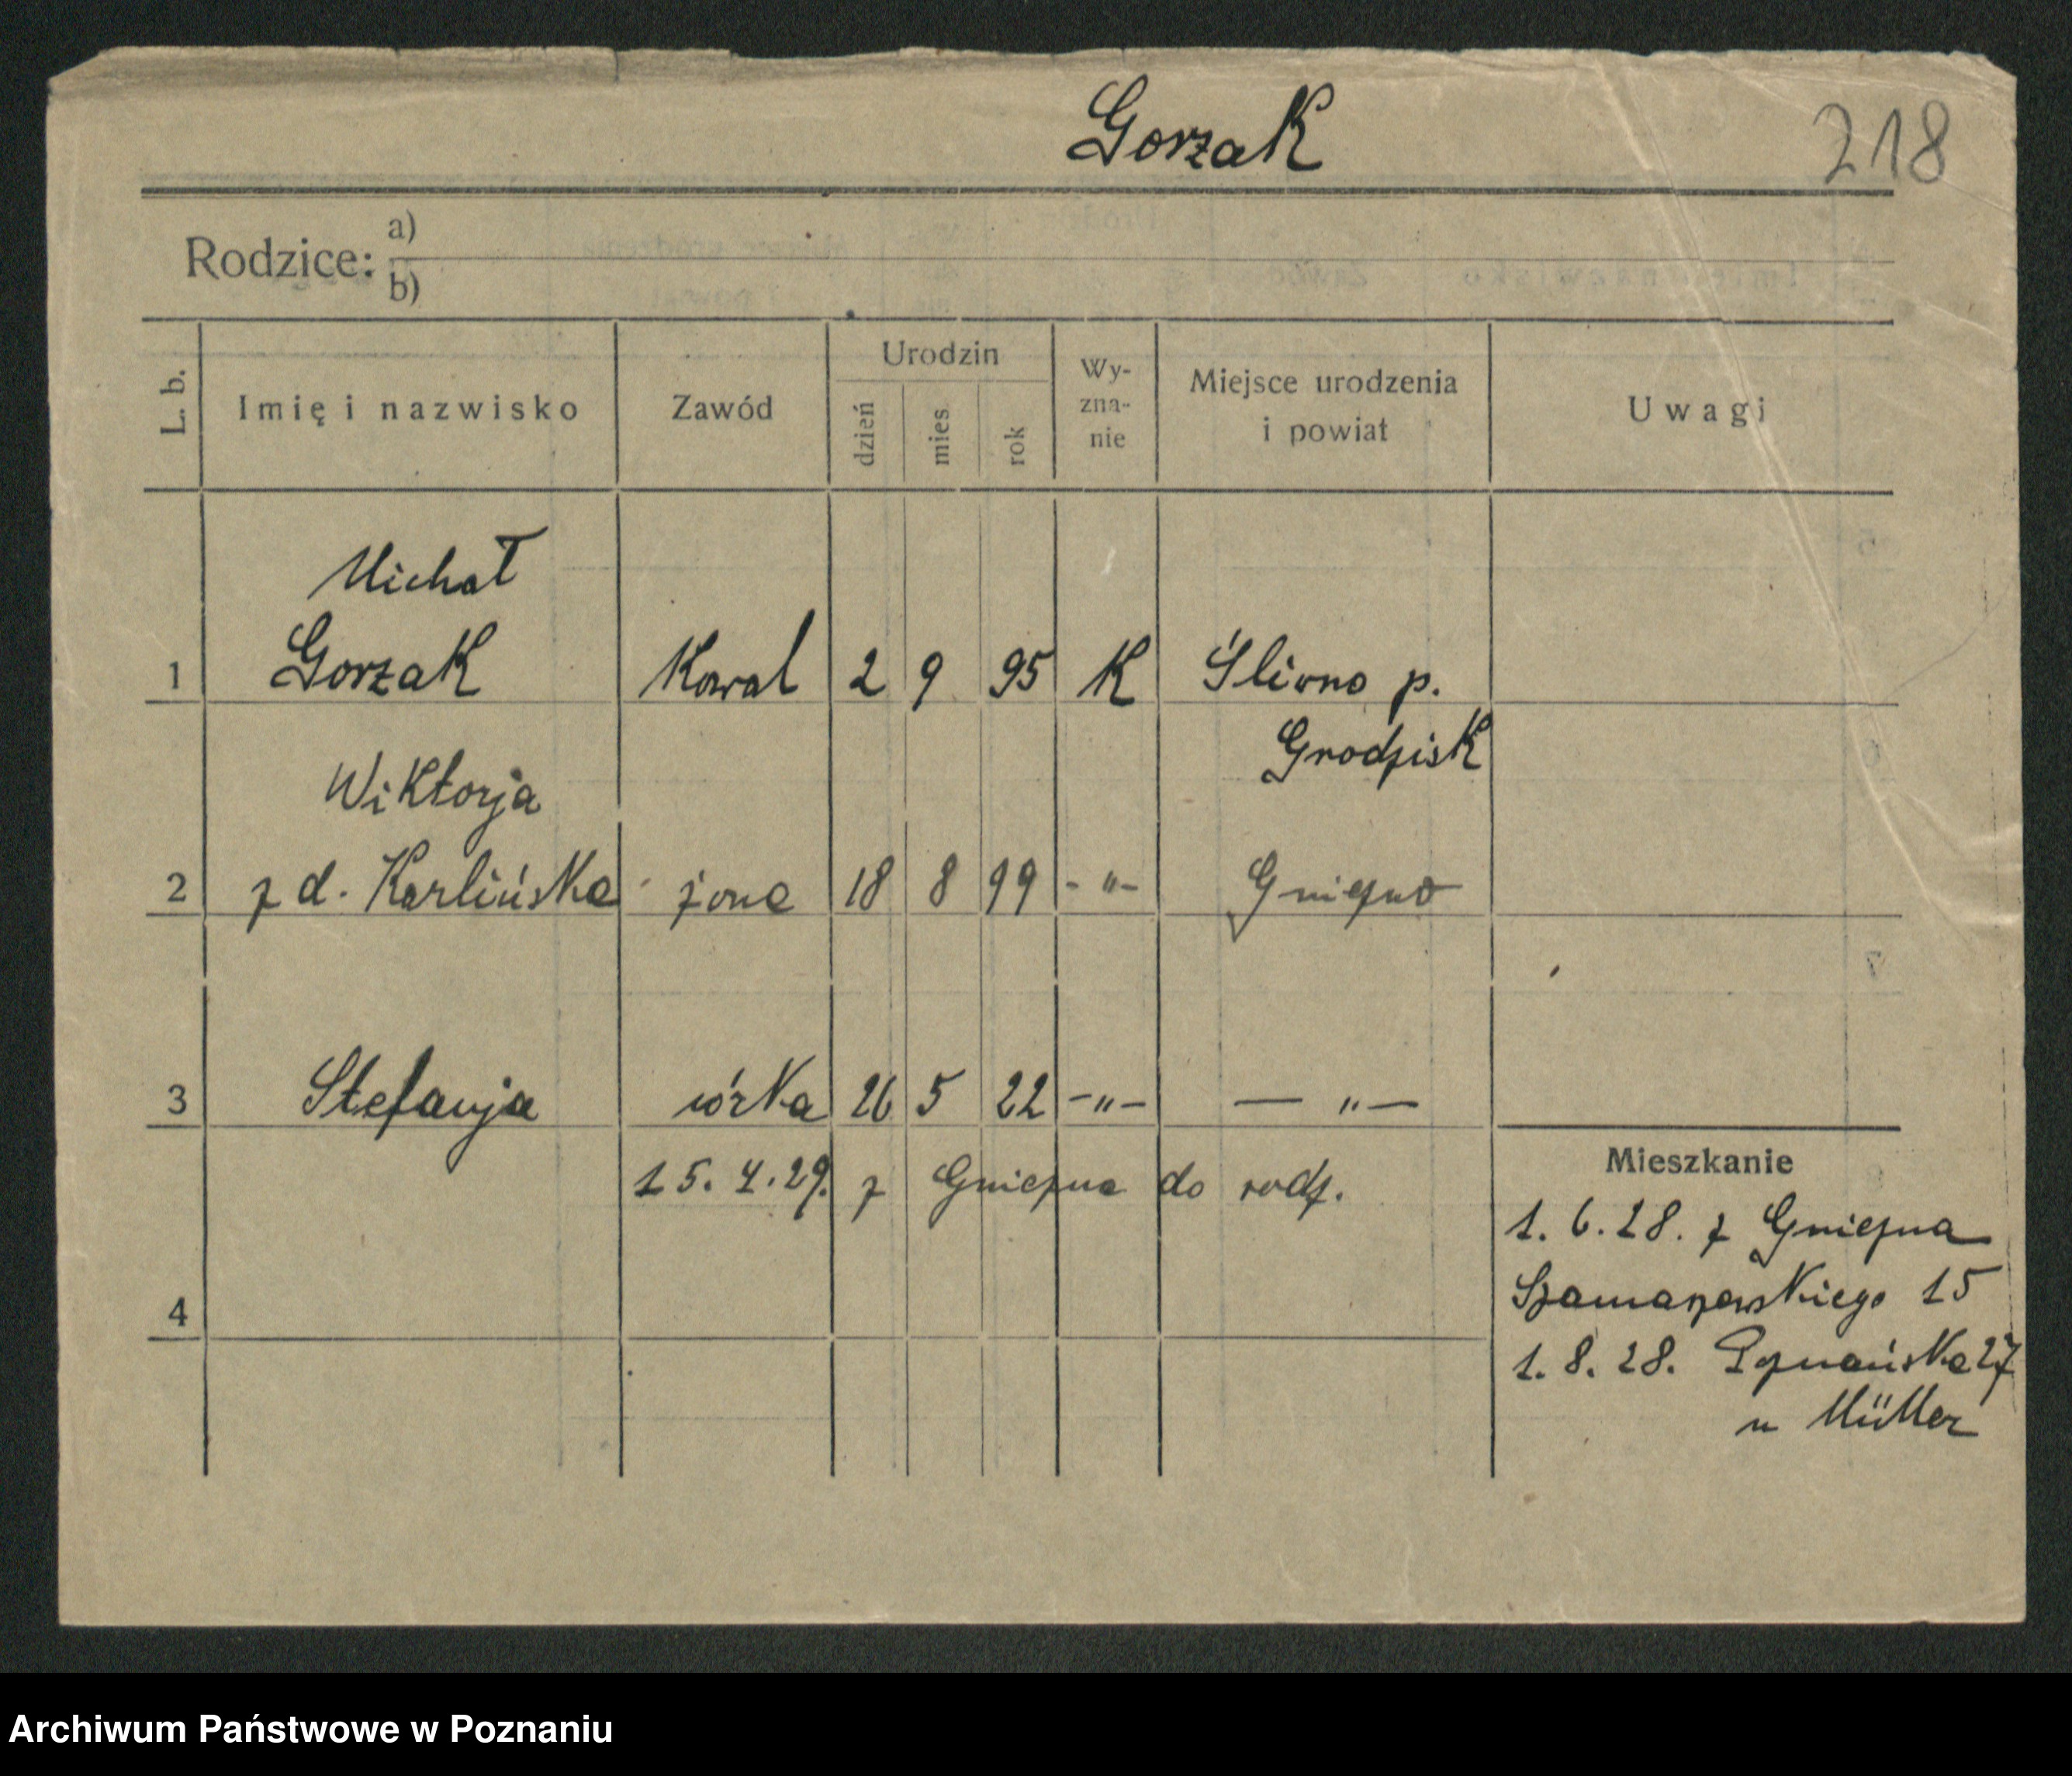 Gorzak
218
Rodzice: a)
b)
L. b.
Imię i nazwisko
Zawód
Urodzin
dzień
mies
rok
Wy-
zna-
nie
Miejsce urodzenia
i powiat
Uwagi
Michał
1 Gorzak Kowal 2 9 95 K Śliwno p.
Grodzisk
Wiktorja
2 z d. Karlińska żona 18 8 99 -"- Gniezno
3 Stefanja córka 26 5 22 -"- — " —
Mieszkanie
15. 4. 29. z Gniezna do rodz.
1. 6. 28. z Gniezna
Szamarzewskiego 15
4
1. 8. 28. Poznańska 27
u Müller
Archiwum Państwowe w Poznaniu